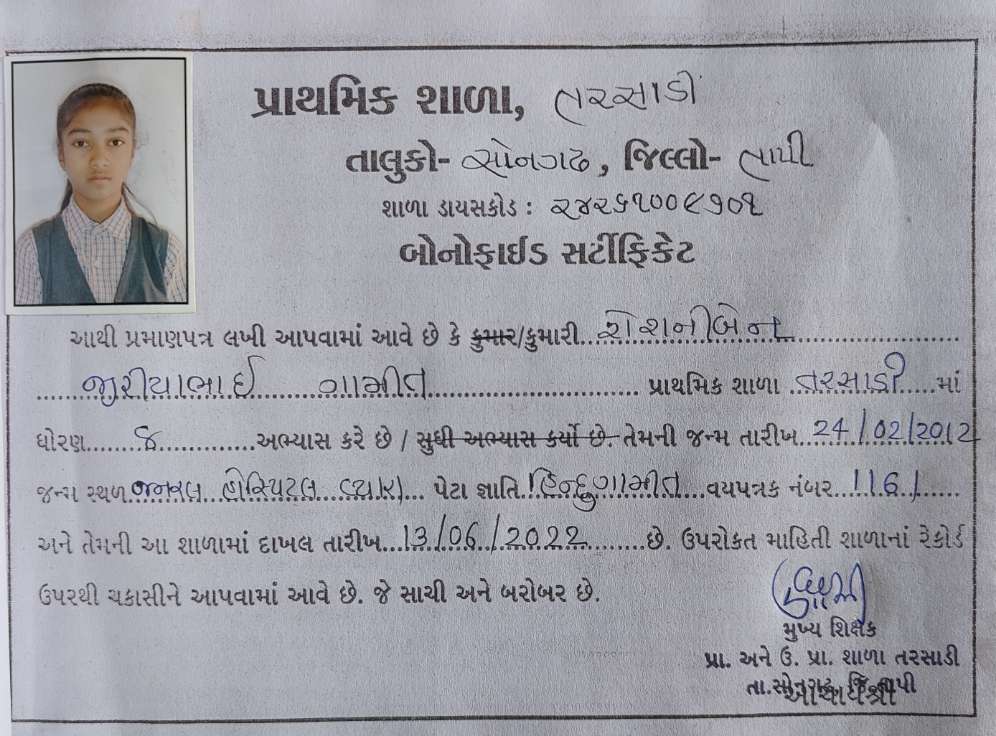 પ્રાથમિક શાળા, તરસાડી
તાલુકો- સોનગઢ, જિલ્લો- તાપી
શાળા ડાયસકોડ : ૨૪૨૬૧૦૦૯૭૦૧
બોનોફાઈડ સર્ટીફિકેટ
આથી પ્રમાણપત્ર લખી આપવામાં આવે છે કે કુમાર/કુમારી રોશનીબેન
જીરીયાભાઈ ગામીત પ્રાથમિક શાળા તરસાડી માં
ધોરણ ૪ અભ્યાસ કરે છે / સુધી અભ્યાસ કર્યો છે. તેમની જન્મ તારીખ 24/02/2012
જન્મ સ્થળ જનરલ હોસ્પિટલ વ્યારા પેટા જ્ઞાતિ હિન્દુગામીત વયપત્રક નંબર 1161
અને તેમની આ શાળામાં દાખલ તારીખ 13/06/2022 છે. ઉપરોકત માહિતી શાળાનાં રેકોર્ડ
ઉપરથી ચકાસીને આપવામાં આવે છે. જે સાચી અને બરોબર છે.
મુખ્ય શિક્ષક
પ્રા. અને ઉ. પ્રા. શાળા તરસાડી
તા.સોનગઢ, જિ.તાપી
આચાર્યશ્રી